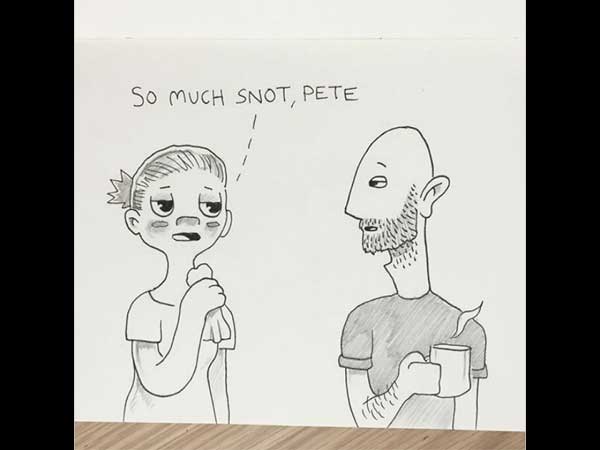 SO MUCH SNOT, PETE